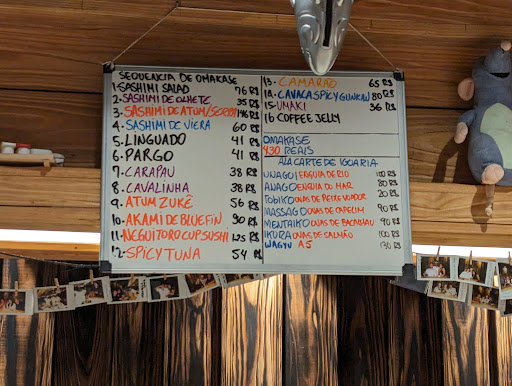 SEQUENCIA DE OMAKASE
1-SASHIMI SALAD 76 R$
2-SASHIMI DE OLHETE 35 R$
3-SASHIMI DE ATUM/SOROI 146 R$
4-SASHIMI DE VIEIRA 60 R$
5-LINGUADO 41 R$
6-PARGO 41 R$
7-CARAPAU 38 R$
8-CAVALINHA 38 R$
9-ATUM ZUKÊ 56 R$
10-AKAMI DE BLUEFIN 90 R$
11-NEGUITORO CUP SUSHI 125 R$
12-SPICY TUNA 54 R$
13-CAMARÃO 65 R$
14-CAVACA SPICY GUNKAN 80 R$
15-UMAKI 36 R$
16 COFFEE JELLY
OMAKASE
430 REAIS
A LA CARTE DE IGUARIA
UNAGI ENGUIA DE RIO 100 R$
ANAGO ENGUIA DO MAR 80 R$
TOBIKO OVAS DE PEIXE VOADOR 20 R$
MASSAGO OVAS DE CAPELIM 90 R$
MENTAIKO OVAS DE BACALHAU 90 R$
IKURA OVAS DE SALMÃO 100 R$
WAGYU A5 130 R$